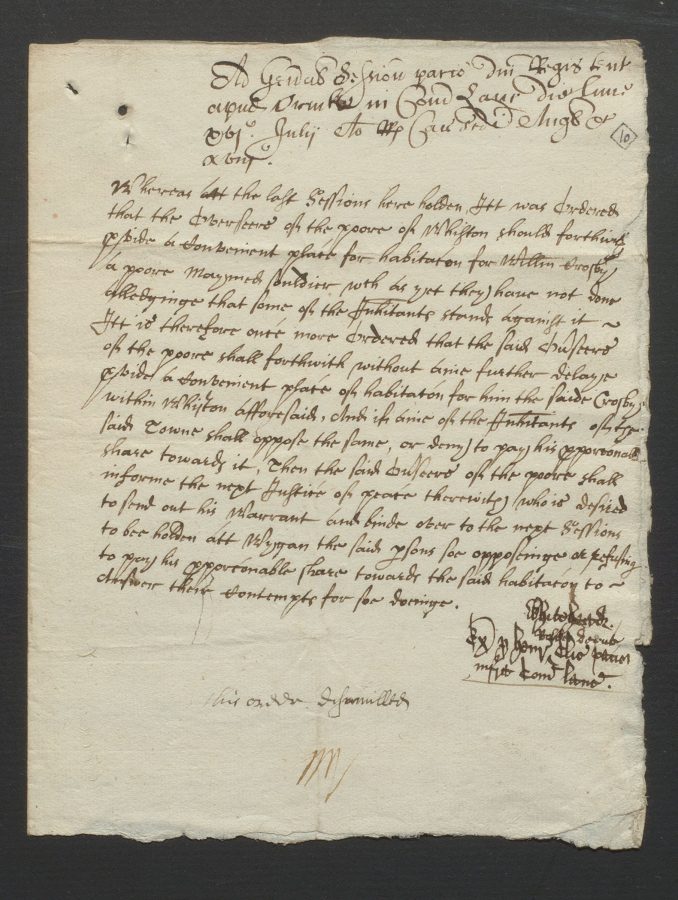 Ad Gen'al Session pacis Dni Regis tent
apud Ormsk' in Com Lanc die Lune
xvjo. Julij Ao RR Car' sc'di Angl &c
10
xviijo.
Whereas att the last Sessions here holden Itt was Ordered
that the Overseers of the poore of Whiston should forthwith
p'vide a Convenient place for habitacon for Willm Crosby
a poore Maymed souldier wch as yet they have not done
alledginge that some of the Inhitants stands against it ~
Itt is therefore once more Ordered that the said Ou'seers
of the poore shall forthwith without anie further delaye
p'vide a Convenient place of habitacon for him the saide Crosby
within Whiston afforesaid, And if anie of the Inhitants of the
said Towne shall oppose the same, or deny to pay his pporconable
share towards it, Then the said Ou'seers of the poore shall
informe the next Justice of peace therewith who is desired
to send out his Warrant and binde over to the next Sessions
to bee holden att Wygan the said p'sons soe opposeinge or refusing
to pay his pporconable share towards the said habitacon to ~
Answer their Contempts for soe doeinge.
Ex p
Com Lanc'.
this order